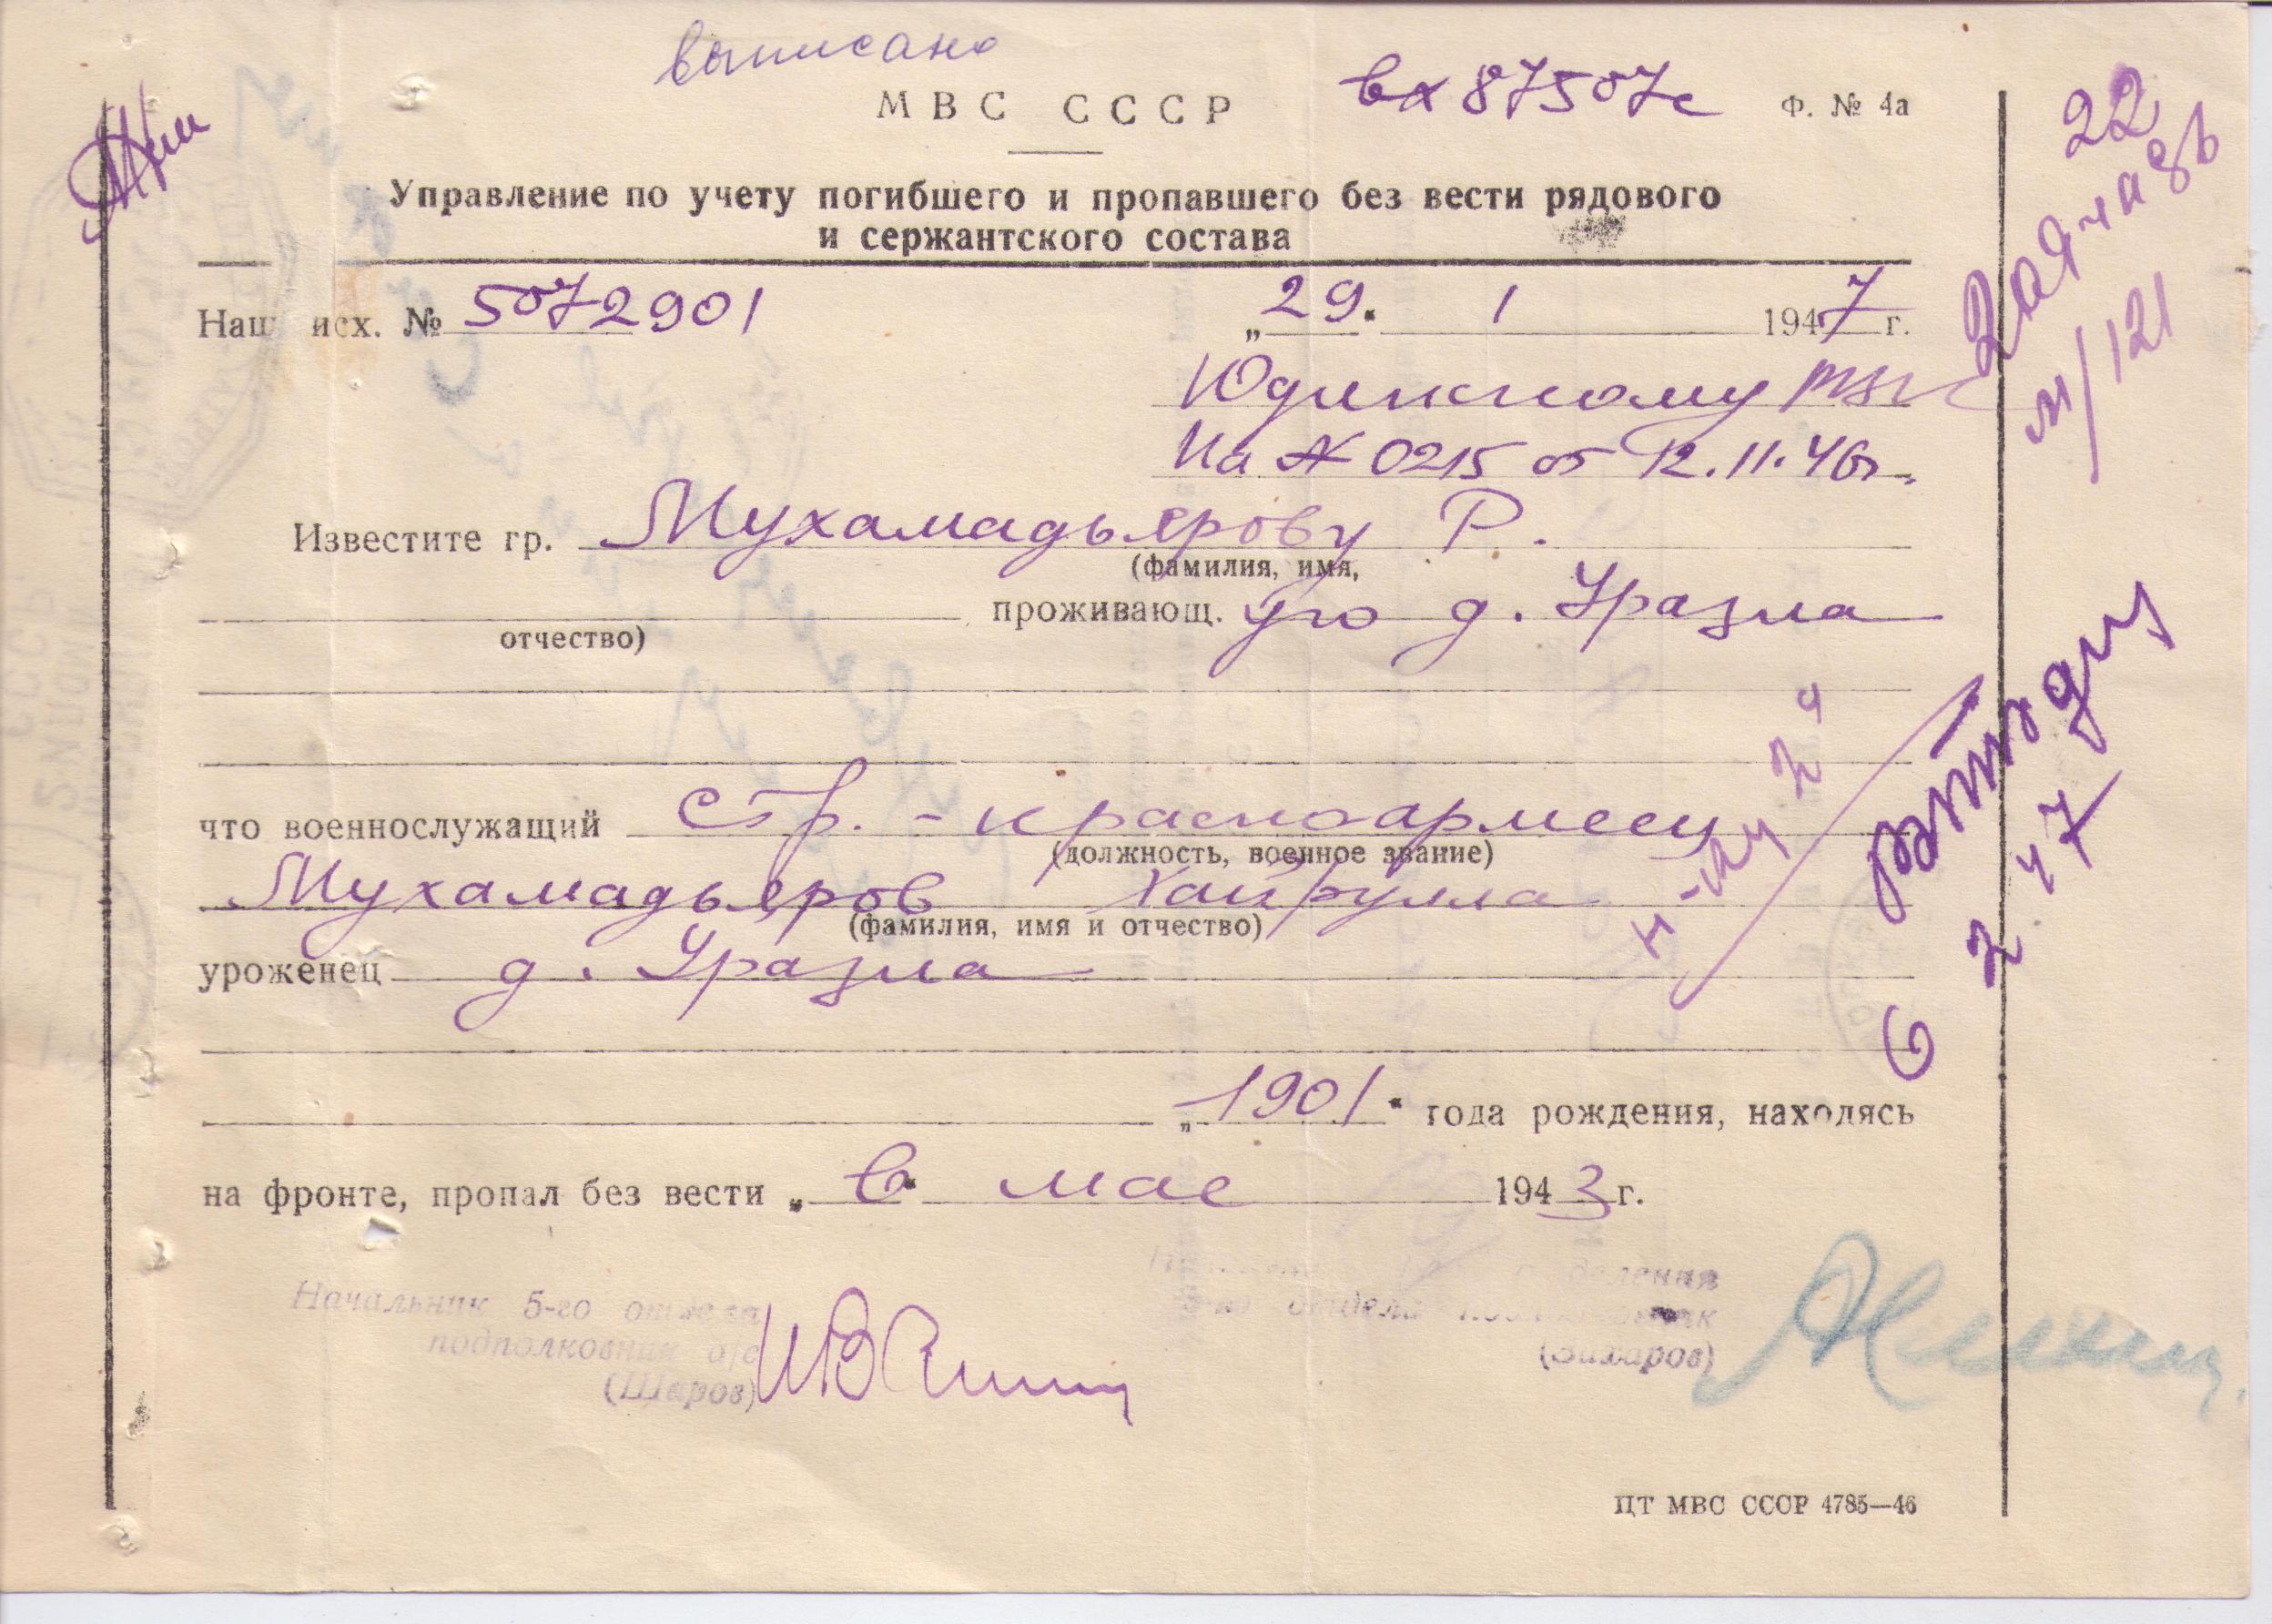 выписано
МВС СССР
вх 87507с
Ф. № 4а
22
Управление по учету погибшего и пропавшего без вести рядового
и сержантского состава
Наш исх. № 5072901
„29“ 1 1947 г.
м/121
Юдинскому РВК
На № 0215 от 12.11.46г.
Известите гр. Мухамадьярову Р.
(фамилия, имя,
проживающ. ую д. Уразла
отчество)
что военнослужащий стр. - красноармеец
(должность, военное звание)
Мухамадьяров Хайрулла
(фамилия, имя и отчество)
уроженец д. Уразла
6 2 47
„1901“ года рождения, находясь
на фронте, пропал без вести „в“ мае 1943 г.
Начальник 5-го отдела
подполковник а/с
(Шаров)
отделения
5-го отдела
ЦТ МВС СССР 4785—46